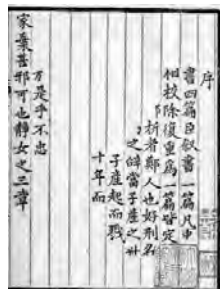 序
書四篇臣叙書一篇凡中
相校除復重爲一篇皆定
析者鄭人也好刑名
之辭當子産之
子産起而戮
十年而
是乎不忠
家棄其邪可也靜女之三章